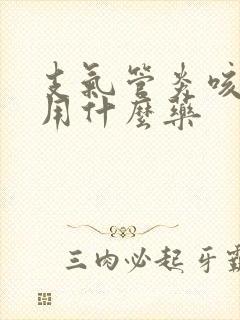 支氣管炎咳
用什麼藥
三肉必起牙霸